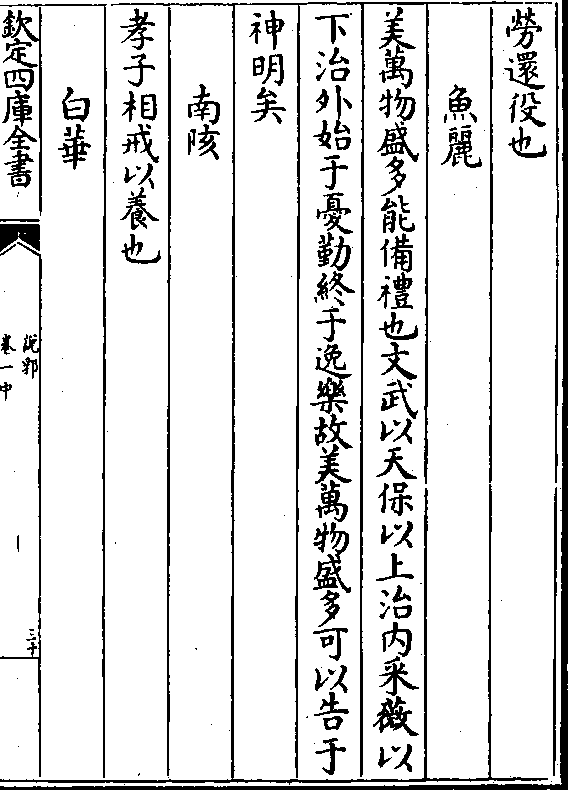 勞還役也
魚麗
美萬物盛多能備禮也文武以天保以上治内采薇以
下治外始于憂勤終于逸樂故美萬物盛多可以告于
神明矣
南陔
孝子相戒以養也
白華
欽定四庫全書
説郛
卷一中
三十